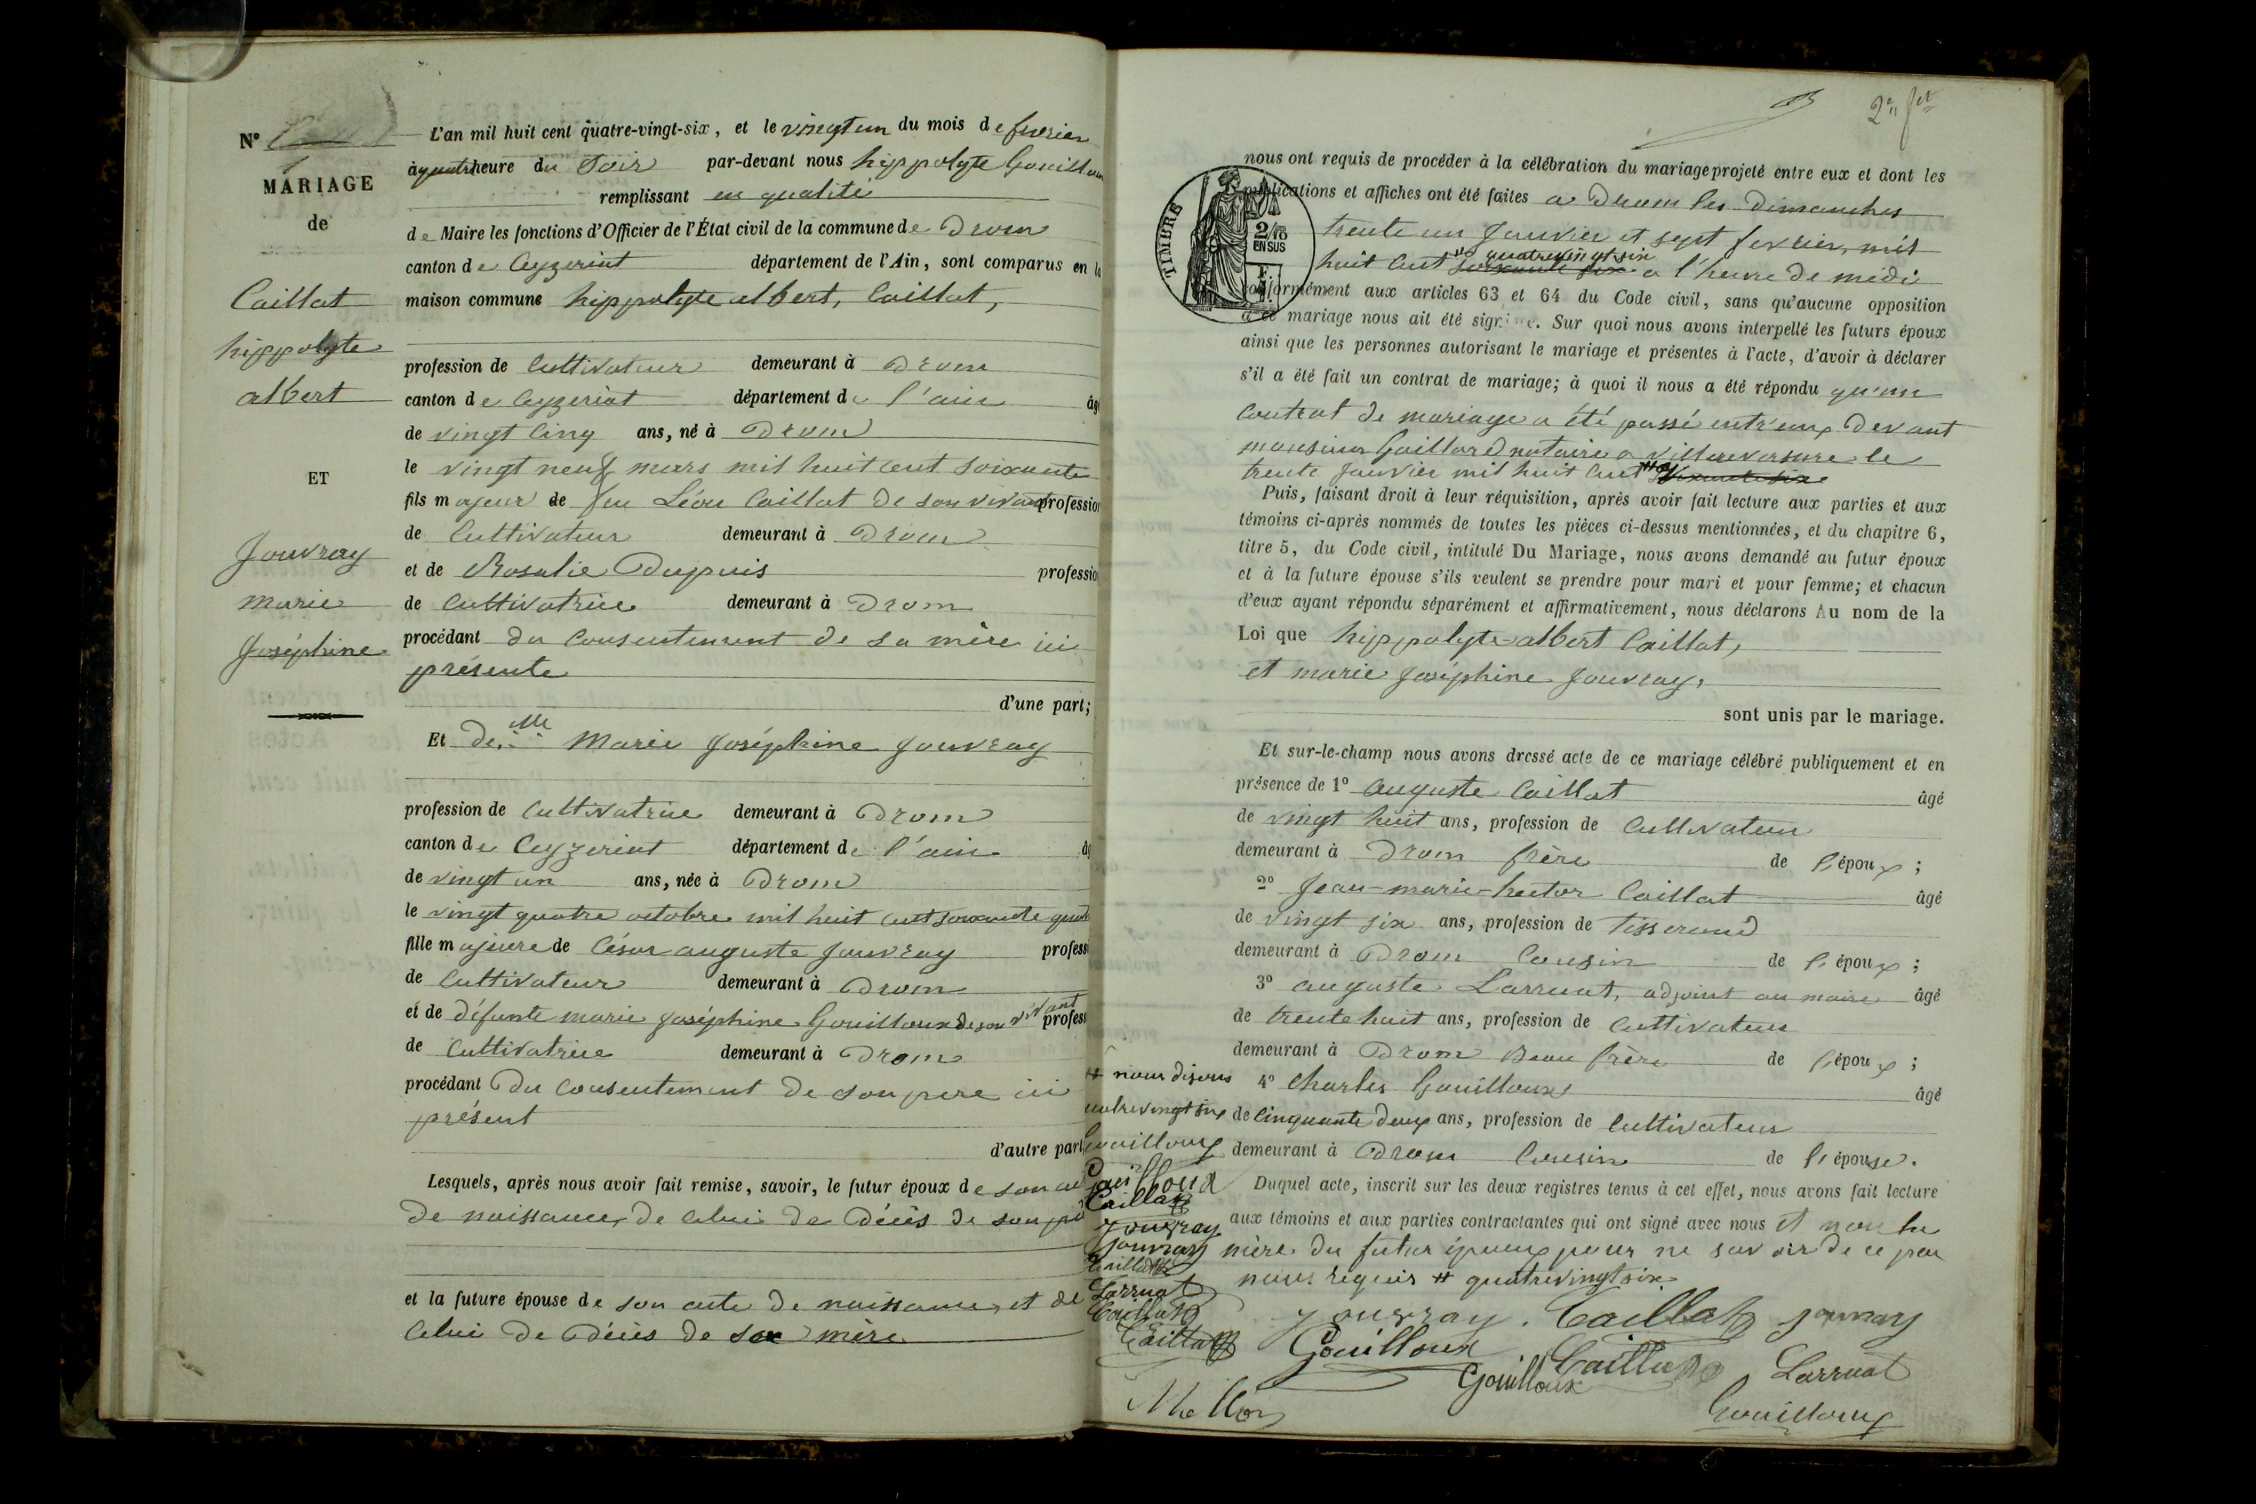 N°
1
MARIAGE
de
Caillat
hippolyte
albert
ET
Jouvray
marie
Joséphine
L'an mil huit cent quatre-vingt-six, et le vingt un du mois de fevrier
à quatre heure du Soir par-devant nous hippolyte Gouilloux
remplissant en qualité
de Maire les fonctions d'Officier de l'État civil de la commune de Drom
canton de Ceyzeriat département de l'Ain, sont comparus en la
maison commune hippolyte albert, Caillat,
profession de Cultivateur demeurant à Drom
canton de Ceyzeriat département de l'ain âgé
de vingt cinq ans, né à Drom
le vingt neuf mars mil huit cent soixante
fils majeur de feu Léon Caillat de son vivant profession
de Cultivateur demeurant à Drom
et de Rosalie Dupuis profession
de Cultivatrice demeurant à Drom
procédant du consentement de sa mère ici
présente
d'une part;
Et de Mlle Marie Joséphine Jouvray
profession de Cultivatrice demeurant à Drom
canton de Ceyzeriat département de l'ain âg
de vingt un ans, née à Drom
le vingt quatre octobre mil huit cent soixante quatre
fille majeure de César auguste Jouvray profess
de Cultivateur demeurant à Drom
et de défunte marie Joséphine Gouilloux de son vivant profess
de Cultivatrice demeurant à Drom
procédant Du consentement de son père ici
présent
d'autre part
Lesquels, après nous avoir fait remise, savoir, le futur époux de son
de naissance, de celui de décès de son
et la future épouse de son acte de naissance, et de
celui de décès de sa mère
2e fet
TIMBRE
2/10
EN SUS
nous ont requis de procéder à la célébration du mariage projeté entre eux et dont les
publications et affiches ont été faites a Drom les dimanches
trente un Janvier et sept fevrier, mil
huit cent quatrevingt six soixante six a l'heure de midi
conformément aux articles 63 et 64 du Code civil, sans qu'aucune opposition
à ce mariage nous ait été signifiée. Sur quoi nous avons interpellé les futurs époux
ainsi que les personnes autorisant le mariage et présentes à l'acte, d'avoir à déclarer
s'il a été fait un contrat de mariage; à quoi il nous a été répondu qu'un
contrat de mariage a été passé entr'eux devant
monsieur Gaillard notaire a villereversure le
trente Janvier mil huit cent # soixante six
Puis, faisant droit à leur réquisition, après avoir fait lecture aux parties et aux
témoins ci-après nommés de toutes les pièces ci-dessus mentionnées, et du chapitre 6,
titre 5, du Code civil, intitulé Du Mariage, nous avons demandé au futur époux
et à la future épouse s'ils veulent se prendre pour mari et pour femme; et chacun
d'eux ayant répondu séparément et affirmativement, nous déclarons Au nom de la
Loi que hippolyte-albert Caillat,
et marie Joséphine Jouvray,
sont unis par le mariage.
Et sur-le-champ nous avons dressé acte de ce mariage célébré publiquement et en
présence de 1° auguste Caillat âgé
de vingt huit ans, profession de Cultivateur
demeurant à Drom frère de l'époux;
2° Jean-marie-hector Caillat âgé
de vingt six ans, profession de tisserand
demeurant à Drom Cousin de l'époux;
3° auguste Larruat, adjoint au maire âgé
de trente huit ans, profession de Cultivateur
demeurant à Drom Beau frère de l'époux;
4° Charles Gouilloux âgé
de cinquante deux ans, profession de Cultivateur
demeurant à Drom Cousin de l'épouse.
Duquel acte, inscrit sur les deux registres tenus à cet effet, nous avons fait lecture
aux témoins et aux parties contractantes qui ont signé avec nous et non la
mère du futur époux pour ne savoir de ce par
nous requis # quatrevingt six
# nous disons
quatrevingt six
Gouilloux
Gouilloux
Caillat
Jouvray
Jouvray
Caillat
Larruat
Caillat
Caillat
Jouvray. Caillat Jouvray
Gouilloux Caillat Larruat
Gouilloux
Gouilloux